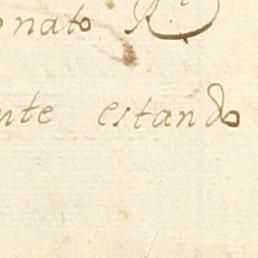 onato R
nte estando